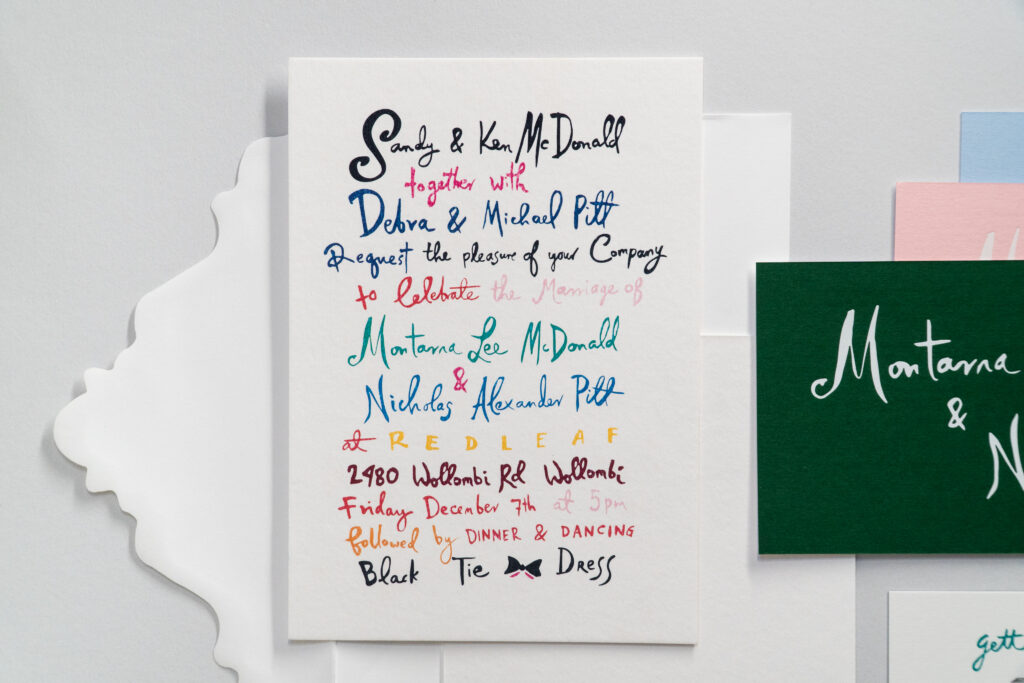 Sandy & Ken McDonald
together with
Debra & Michael Pitt
Request the pleasure of your Company
to Celebrate the Marriage of
Montarna Lee McDonald
&
Nicholas Alexander Pitt
at REDLEAF
2480 Wollombi Rd Wollombi
Friday December 7th at 5pm
followed by DINNER & DANCING
Black Tie Dress
Montarna
&
N
gett